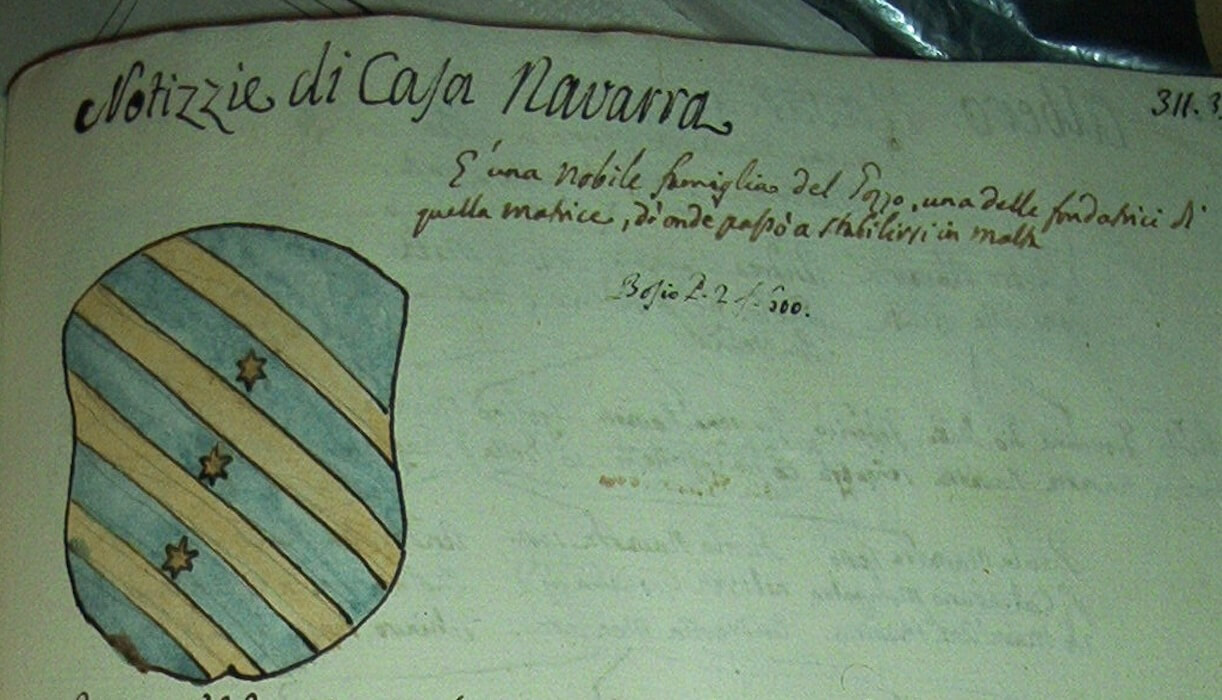 Notizzie di Casa Navarra
311.3
E' una nobile famiglia del Pozzo, una delle fondatrici di
quella matrice, di onde passò a stabilirsi in malta
Bosio P. 2 f. 300.